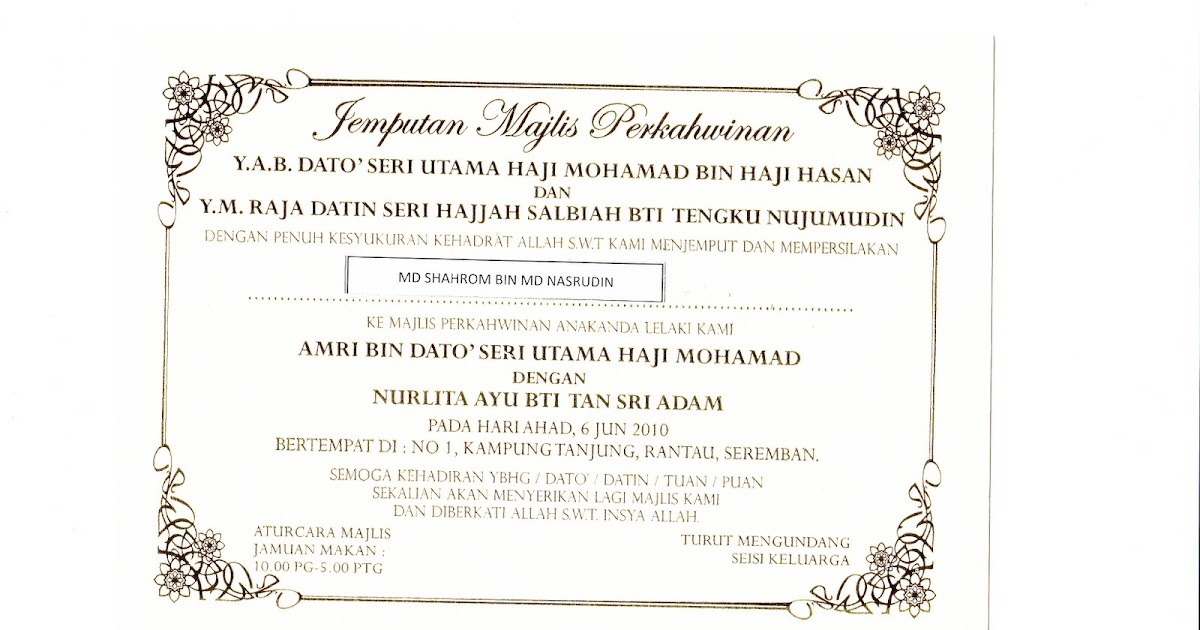 Jemputan Majlis Perkahwinan
Y.A.B. DATO' SERI UTAMA HAJI MOHAMAD BIN HAJI HASAN
DAN
Y.M. RAJA DATIN SERI HAJJAH SALBIAH BTI TENGKU NUJUMUDIN
DENGAN PENUH KESYUKURAN KEHADRAT ALLAH S.W.T KAMI MENJEMPUT DAN MEMPERSILAKAN
MD SHAHROM BIN MD NASRUDIN
KE MAJLIS PERKAHWINAN ANAKANDA LELAKI KAMI
AMRI BIN DATO' SERI UTAMA HAJI MOHAMAD
DENGAN
NURLITA AYU BTI TAN SRI ADAM
PADA HARI AHAD, 6 JUN 2010
BERTEMPAT DI : NO 1, KAMPUNG TANJUNG, RANTAU, SEREMBAN.
SEMOGA KEHADIRAN YBHG / DATO' / DATIN / TUAN / PUAN
SEKALIAN AKAN MENYERIKAN LAGI MAJLIS KAMI
DAN DIBERKATI ALLAH S.W.T. INSYA ALLAH.
ATURCARA MAJLIS
JAMUAN MAKAN :
10.00 PG-5.00 PTG
TURUT MENGUNDANG
SEISI KELUARGA